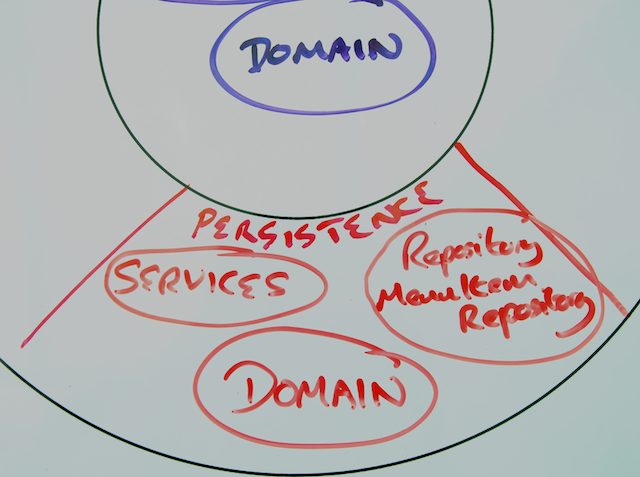 DOMAIN
PERSISTENCE
SERVICES
Repository
MenuItem
Repository
DOMAIN